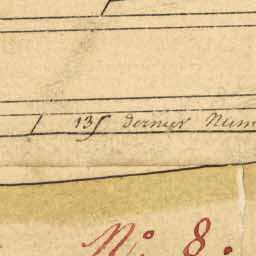 13 dernier Num
N.º 8.